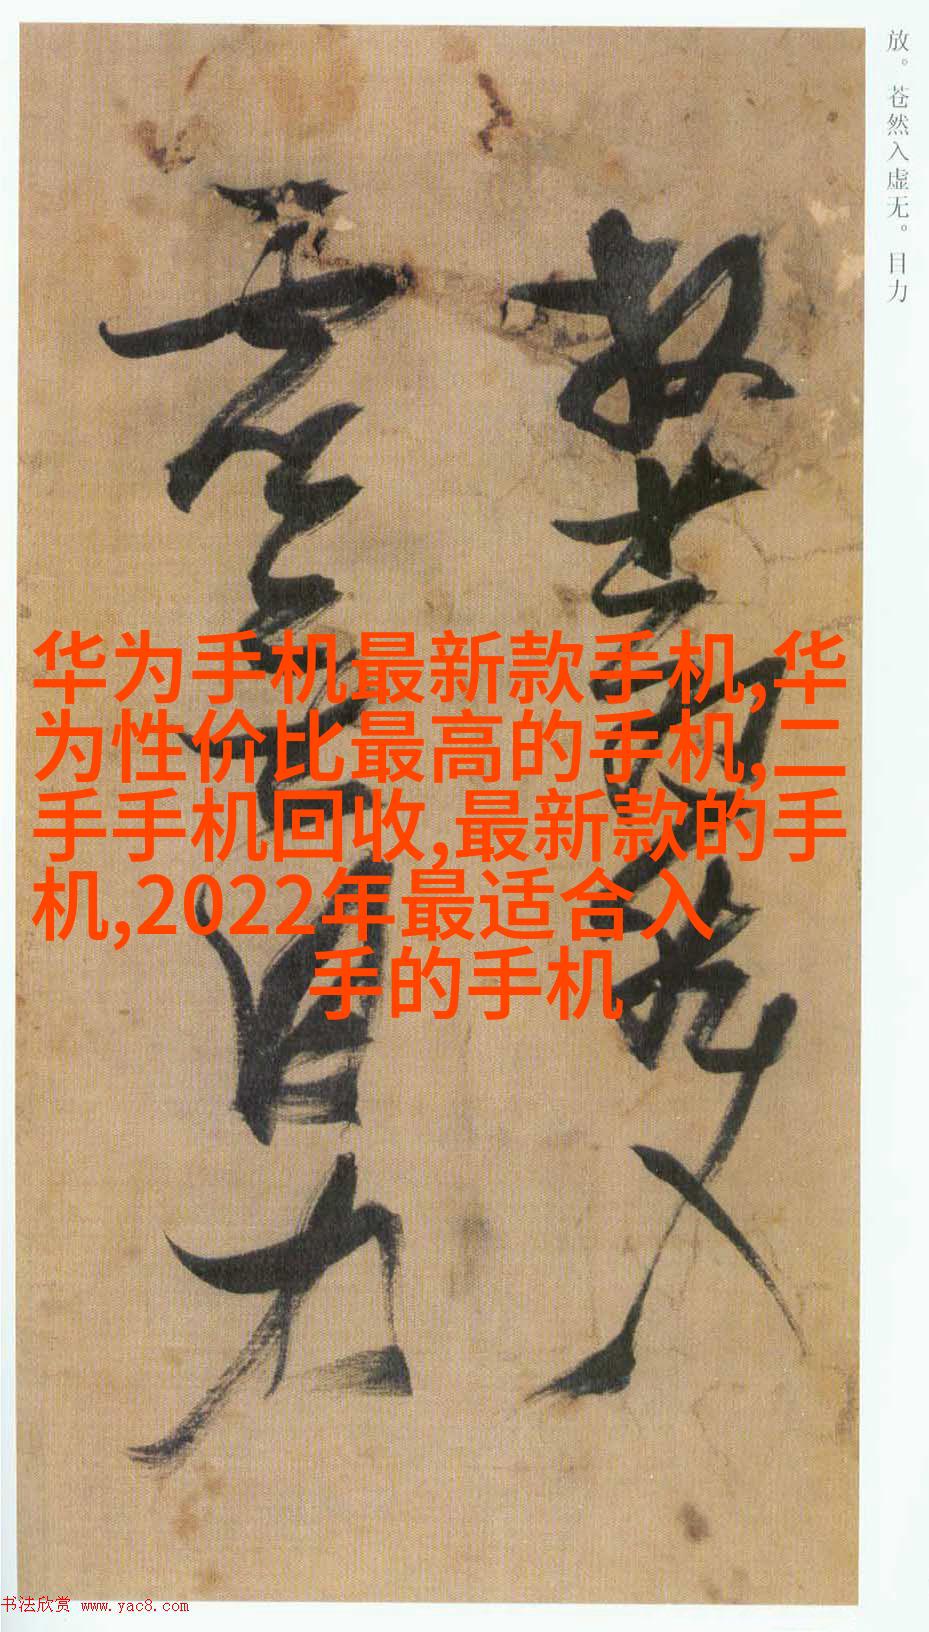 放。苍然入虚无。目力
华为手机最新款手机,华
为性价比最高的手机,二
手手机回收,最新款的手
机,2022年最适合入
手的手机
书法欣赏 www.yac8.com